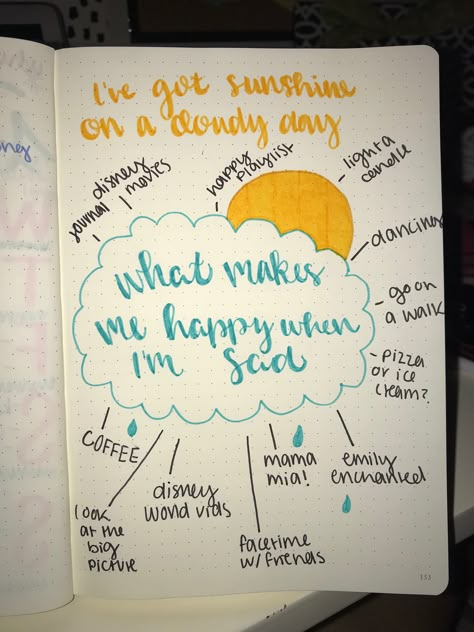 I've got sunshine
on a cloudy day
journal
disney
movies
happy
playlist
light a
candle
dancing
go on
a walk
pizza
or ice
cream?
what makes
me happy when
I'm sad
COFFEE
look
at the
big
picture
disney
world vids
facetime
w/ friends
mama
mia!
emily
enchanted